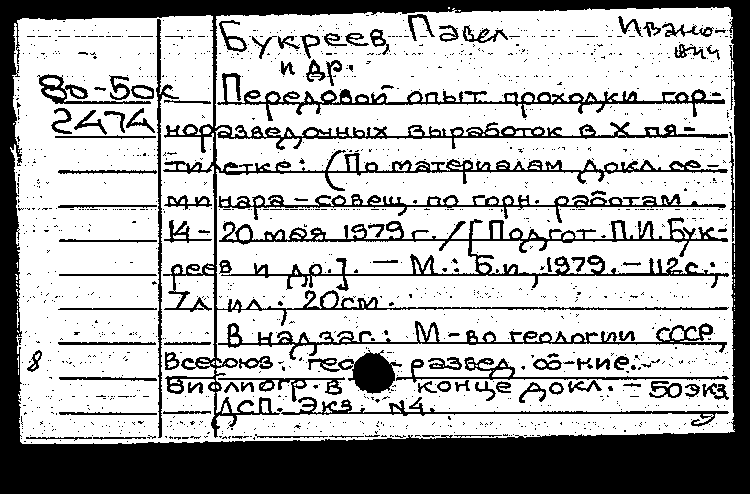 Букреев, Павел Ивано-
вич
и др.
8о-50к Передовой опыт проходки гор-
2474 норазведочных выработок в X пя-
тилетке: (По материалам докл. се-
минара-совещ. по горн. работам.
14-20 мая 1979 г. / [Подгот. П.И. Бук-
реев и др.]. - М.: Б.и., 1979. - 112 с.;
7л. ил.; 20 см.
В надзаг.: М-во геологии СССР,
8 Всесоюз. геол.-развед. об-ние.
Библиогр. в конце докл. - 50 экз.
ДСП. Экз. N4.